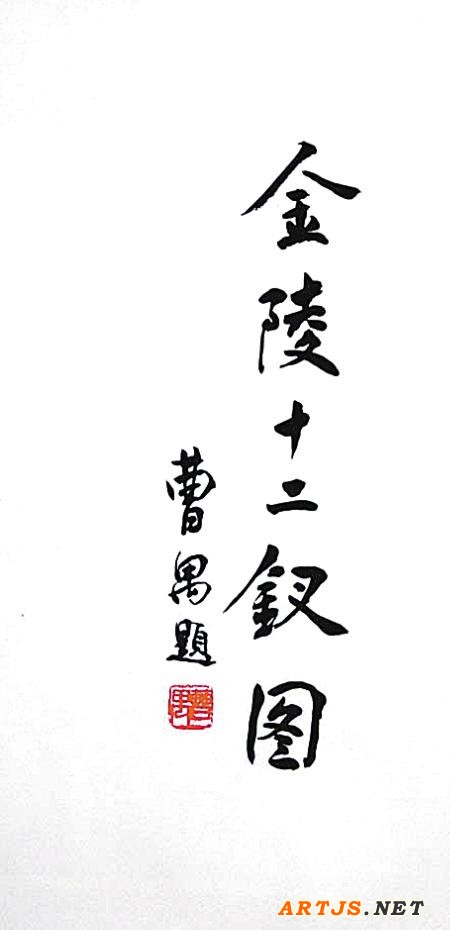 金陵十二釵图
曹禺題
ARTJS.NET